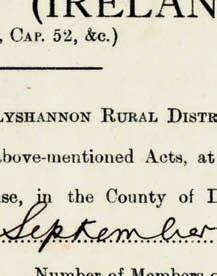 (IRELAN
, CAP. 52, &c.)
LYSHANNON RURAL DISTR
above-mentioned Acts, at
se, in the County of D
September
Number of Members o